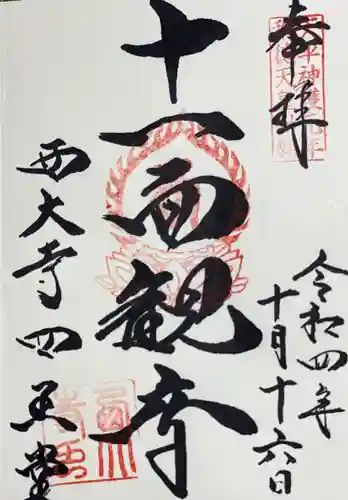 奉拝
令和四年
十月十六日
十一面観音
西大寺四王堂